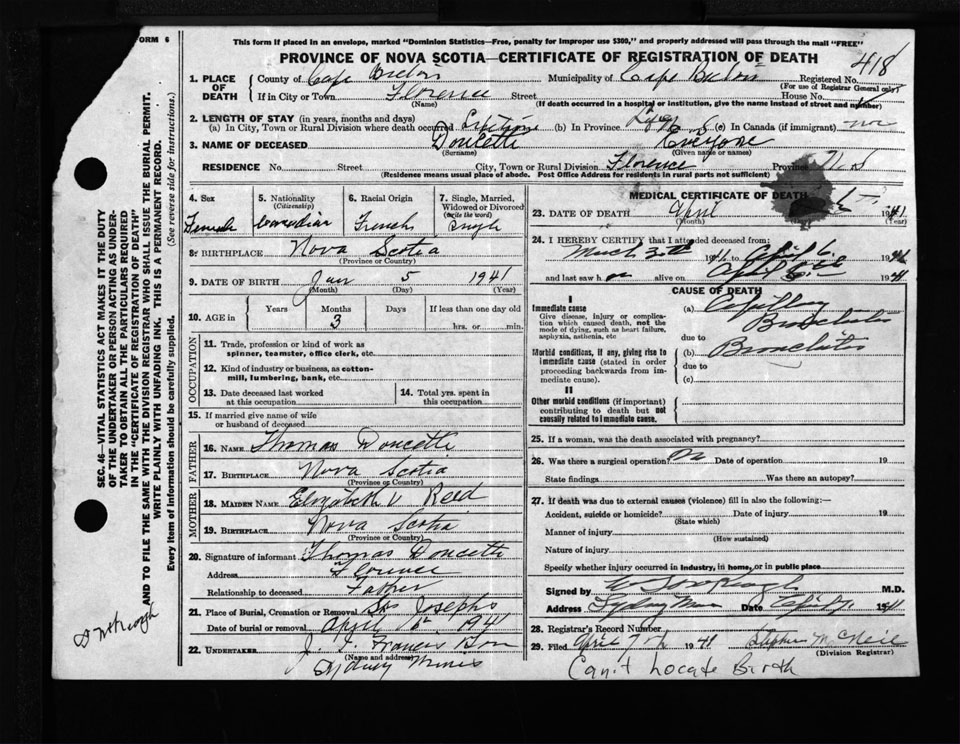 FORM 6
This form if placed in an envelope, marked "Dominion Statistics—Free, penalty for improper use $300," and properly addressed will pass through the mail "FREE"
PROVINCE OF NOVA SCOTIA—CERTIFICATE OF REGISTRATION OF DEATH
418
1. PLACE OF DEATH
County of Cape Breton Municipality of Cape Breton Registered No.
(For use of Registrar General only)
If in City or Town Florence Street House No.
(Name) (If death occurred in a hospital or institution, give the name instead of street and number)
2. LENGTH OF STAY (in years, months and days)
(a) In City, Town or Rural Division where death occurred Lifetime (b) In Province Life N S (c) In Canada (if immigrant)
3. NAME OF DECEASED Doucette
(Surname) (Given name or names)
RESIDENCE No. Street City, Town or Rural Division Florence Province N.S
(Residence means usual place of abode. Post Office Address for residents in rural parts not sufficient)
4. Sex Female
5. Nationality (Citizenship) Canadian
6. Racial Origin French
7. Single, Married, Widowed or Divorced (Write the word) Single
8. BIRTHPLACE Nova Scotia
(Province or Country)
9. DATE OF BIRTH Jan 5 1941
(Month) (Day) (Year)
10. AGE in Years Months 3 Days If less than one day old hrs. or min.
OCCUPATION
11. Trade, profession or kind of work as spinner, teamster, office clerk, etc.
12. Kind of industry or business, as cotton-mill, lumbering, bank, etc.
13. Date deceased last worked at this occupation
14. Total yrs. spent in this occupation
15. If married give name of wife or husband of deceased
FATHER
16. NAME Thomas Doucette
17. BIRTHPLACE Nova Scotia
(Province or Country)
MOTHER
18. MAIDEN NAME Elizabeth V Reed
19. BIRTHPLACE Nova Scotia
(Province or Country)
20. Signature of informant Thomas Doucette
Address Florence
Relationship to deceased Father
21. Place of Burial, Cremation or Removal St Josephs
Date of burial or removal April 6 1941
22. UNDERTAKER J. Francis
(Name and address)
Sydney Mines
MEDICAL CERTIFICATE OF DEATH
23. DATE OF DEATH April 1941
(Month) (Year)
24. I HEREBY CERTIFY that I attended deceased from:
March 30th 1941 to April 6 1941
and last saw h alive on April 1941
CAUSE OF DEATH
I
Immediate cause
Give disease, injury or complication which caused death, not the mode of dying, such as heart failure, asphyxia, asthenia, etc
(a) Capillary
Bronchitis
due to
Morbid conditions, if any, giving rise to immediate cause (stated in order proceeding backwards from immediate cause).
(b) Bronchitis
due to
(c)
II
Other morbid conditions (if important) contributing to death but not causally related to immediate cause.
25. If a woman, was the death associated with pregnancy?
26. Was there a surgical operation? No Date of operation 19
State findings Was there an autopsy?
27. If death was due to external causes (violence) fill in also the following:—
Accident, suicide or homicide? Date of injury 19
(State which)
Manner of injury
(How sustained)
Nature of injury
Specify whether injury occurred in industry, in home, or in public place
Signed by M.D.
Address Sydney Mines Date April 7 1941
28. Registrar's Record Number
29. Filed April 7th 1941 Stephen McNeil
(Division Registrar)
Can't Locate Birth
SEC. 46—VITAL STATISTICS ACT MAKES IT THE DUTY OF THE UNDERTAKER OR PERSON ACTING AS UNDERTAKER TO OBTAIN ALL THE PARTICULARS REQUIRED IN THE "CERTIFICATE OF REGISTRATION OF DEATH"
AND TO FILE THE SAME WITH THE DIVISION REGISTRAR WHO SHALL ISSUE THE BURIAL PERMIT.
WRITE PLAINLY WITH UNFADING INK. THIS IS A PERMANENT RECORD.
Every item of information should be carefully supplied. (See reverse side for instructions.)